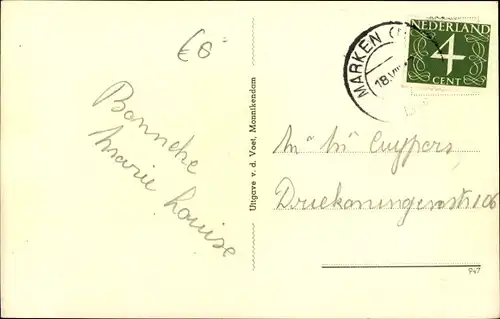 €6
Bonneke
Marie Louise
Uitgave v. d. Voet, Monnikendam
MARKEN
18.VIII
NEDERLAND
4
CENT
Mr Mr Cuypers
Driekoningenstr 106
947